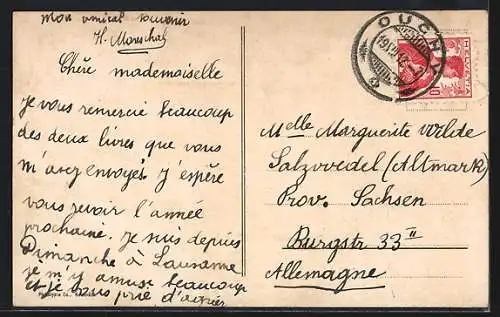 mon amical souvenir
H. Mareschal
Chère mademoiselle
Je vous remercie beaucoup
des deux livres que vous
m'avez envoyés j'espère
vous revoir l'année
prochaine. Je suis depuis
Dimanche à Lausanne
je m'y amuse beaucoup
et je vous prie d'agréer
OUCHY
HELVETIA
10
Melle Marguerite Wilde
Salzwedel (Altmark)
Prov. Sachsen
Burgstr 33 II
Allemagne